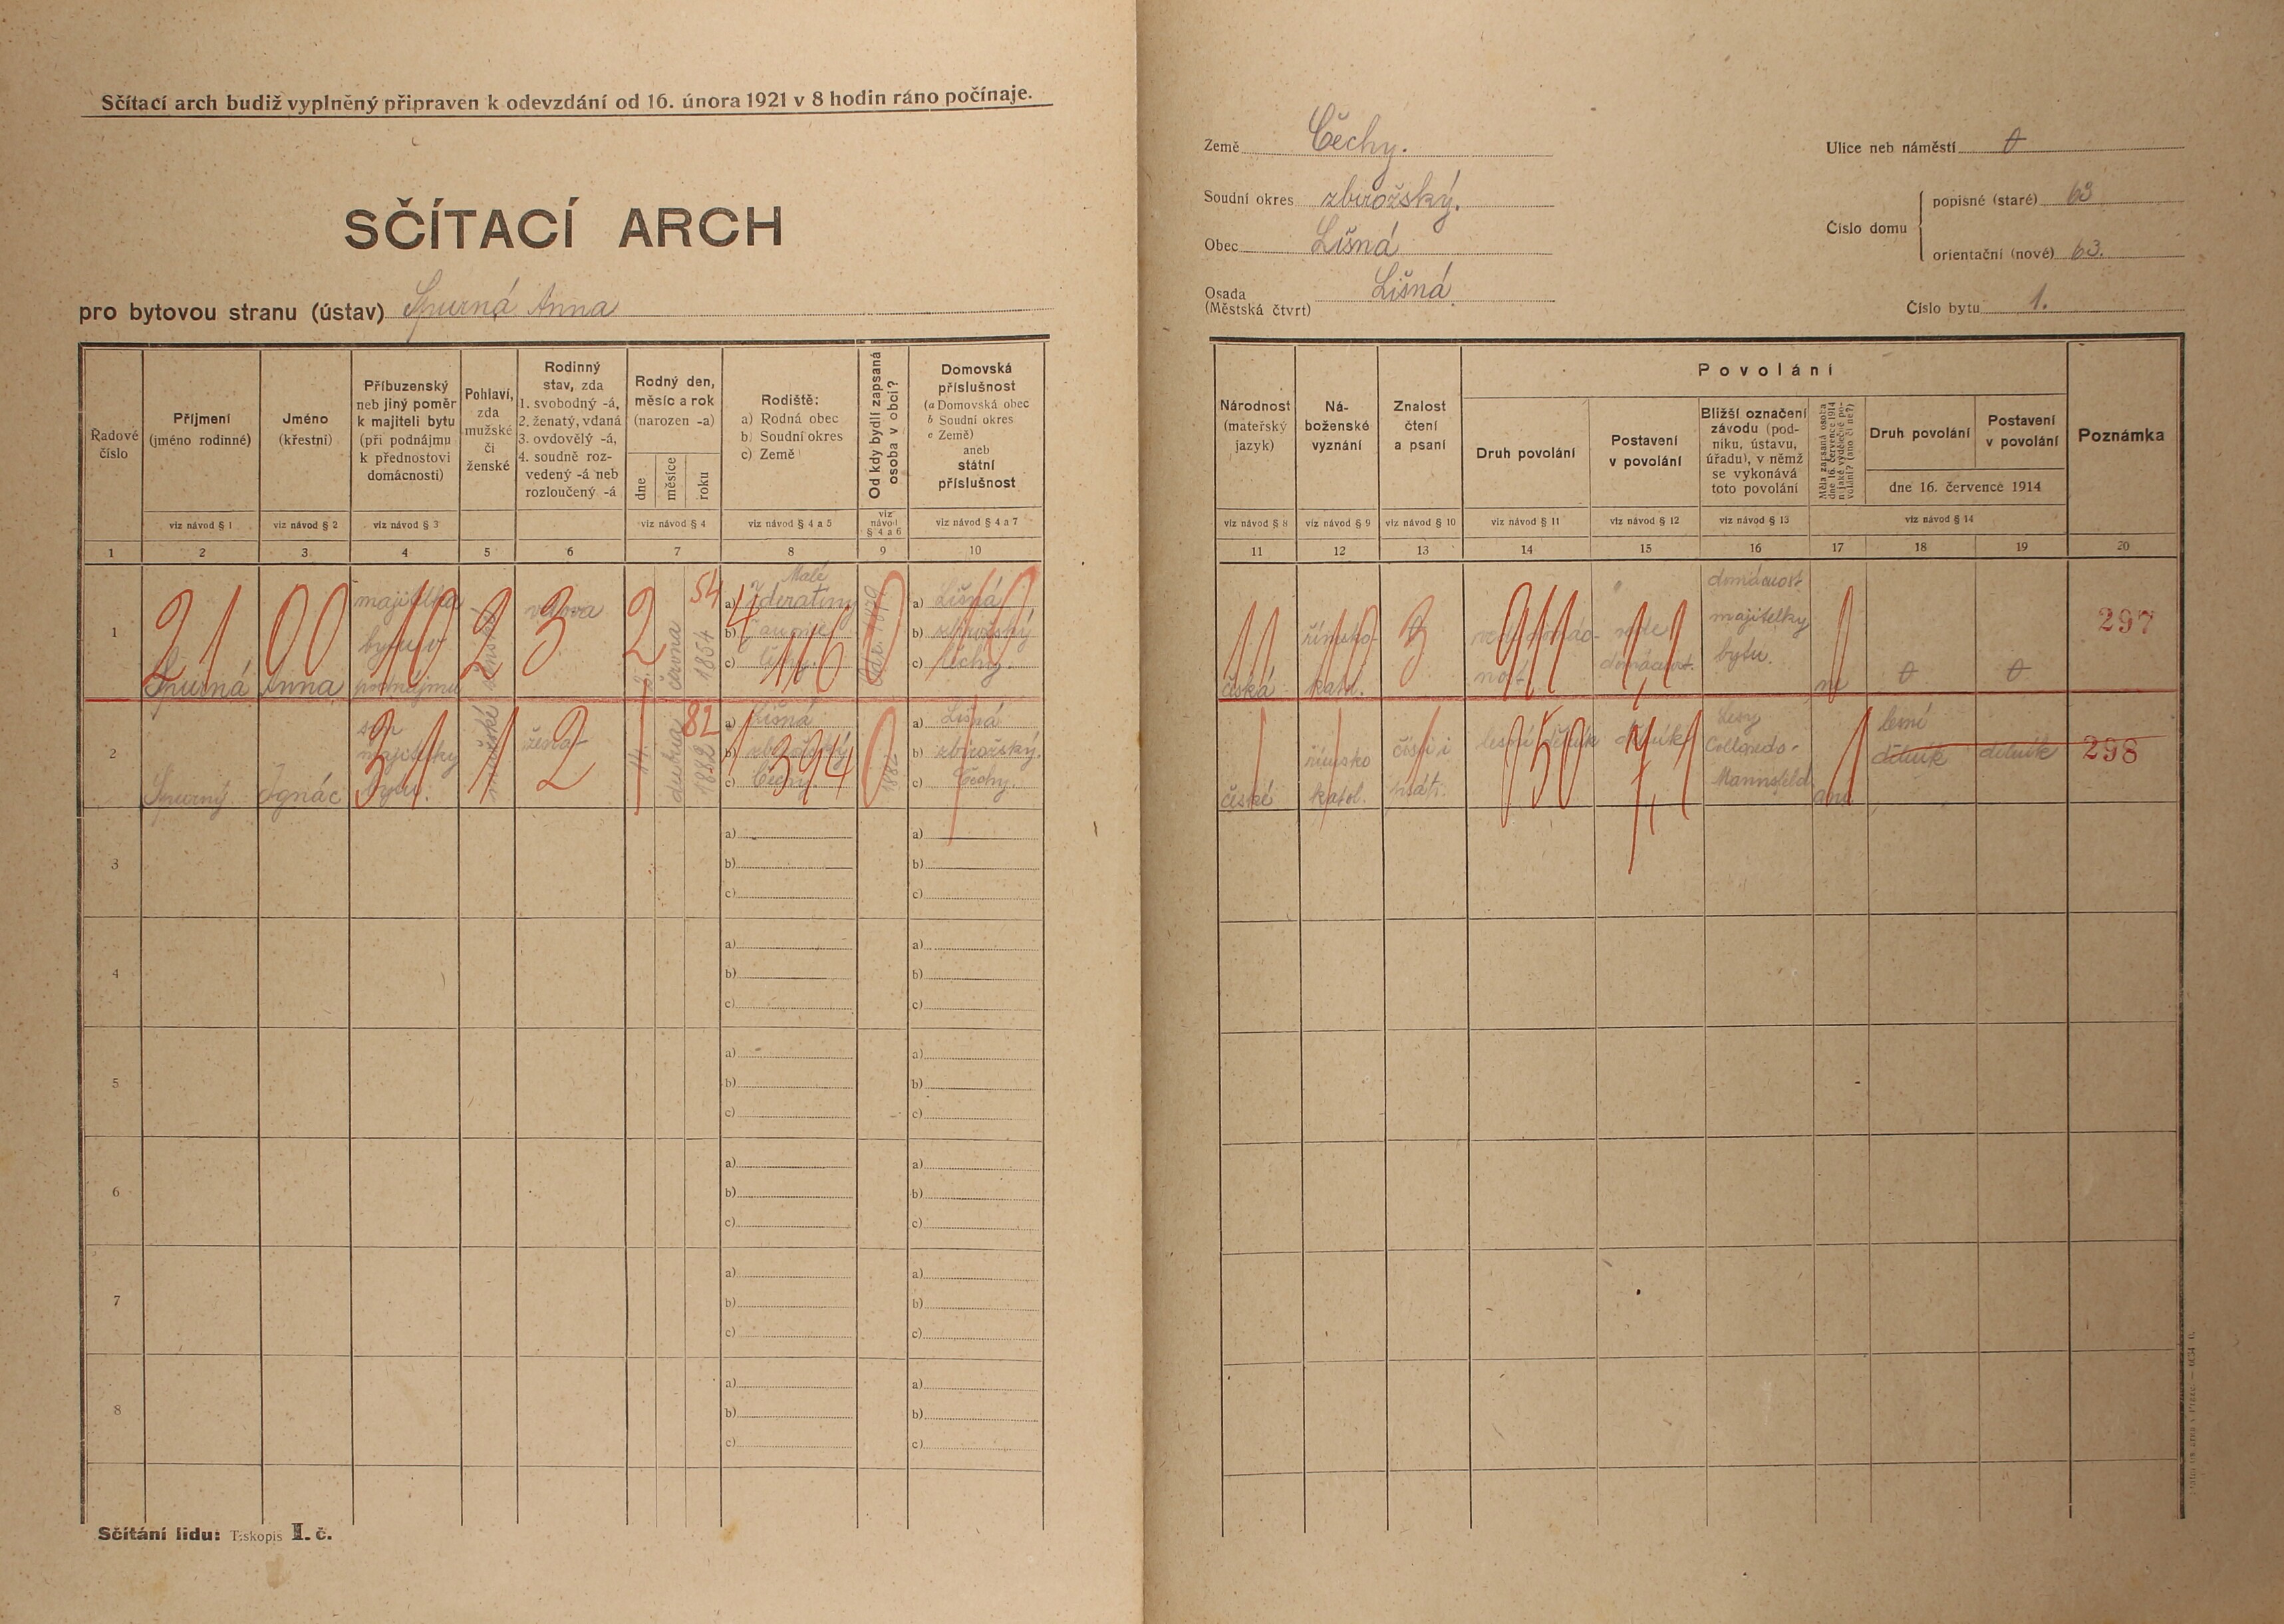 Sčítací arch budiž vyplněný připraven k odevzdání od 16. února 1921 v 8 hodin ráno počínaje.
SČÍTACÍ ARCH
pro bytovou stranu (ústav) Spurná Anna
Země Čechy.
Soudní okres zbirožský.
Obec Lišná
Osada Lišná
(Městská čtvrt)
Ulice neb náměstí 0
Číslo domu
popisné (staré) 63
orientační (nové) 63.
Číslo bytu 1.
Řadové číslo
Příjmení (jméno rodinné)
Jméno (křestní)
Příbuzenský neb jiný poměr k majiteli bytu (při podnájmu k přednostovi domácnosti)
Pohlaví, zda mužské či ženské
Rodinný stav, zda 1. svobodný -á, 2. ženatý, vdaná 3. ovdovělý -á, 4. soudně rozvedený -á neb rozloučený -á
Rodný den, měsíc a rok (narozen -a)
dne
měsíce
roku
Rodiště: a) Rodná obec b) Soudní okres c) Země
Od kdy bydlí zapsaná osoba v obci?
Domovská příslušnost (a Domovská obec b Soudní okres c Země) aneb státní příslušnost
viz návod § 1
viz návod § 2
viz návod § 3
viz návod § 4
viz návod § 4 a 5
viz návod § 4 a 6
viz návod § 4 a 7
1 2 3 4 5 6 7 8 9 10
Národnost (mateřský jazyk)
Náboženské vyznání
Znalost čtení a psaní
Povolání
Druh povolání
Postavení v povolání
Bližší označení závodu (podniku, ústavu, úřadu), v němž se vykonává toto povolání
Měla zapsaná osoba dne 16. července 1914 nějaké výdělečné povolání? (ano či ne?)
Druh povolání
Postavení v povolání
dne 16. července 1914
Poznámka
viz návod § 8
viz návod § 9
viz návod § 10
viz návod § 11
viz návod § 12
viz návod § 13
viz návod § 14
11 12 13 14 15 16 17 18 19 20
1
Spurná
Anna
majitelka
bytu v
podnájmu
ženské
vdova
2.
června
1854
a) Malé
b)
c) Čechy.
a) Lišná
b) zbirožský
c) Čechy.
česká
římsko-
katol.
0
domácnost
majitelky
bytu.
ne
0
0
297
21 00 10 2 3 2 54
11 10 3 911
2
Spurný
Ignác
syn
majitelky
bytu.
mužské
ženat
14.
dubna
1882
a) Lišná
b) zbirožský
c) Čechy.
1882
a) Lišná
b) zbirožský.
c) Čechy.
české
římsko
katol.
čísti i
psáti.
lesní dělník
dělník
Lesy
Colloredo-
Mannsfeld
ano
lesní
dělník
dělník
298
31 1 2 82 1 394 0
3
a)
b)
c)
a)
b)
c)
4
a)
b)
c)
a)
b)
c)
5
a)
b)
c)
a)
b)
c)
6
a)
b)
c)
a)
b)
c)
7
a)
b)
c)
a)
b)
c)
8
a)
b)
c)
a)
b)
c)
Sčítání lidu: Tiskopis I. č.